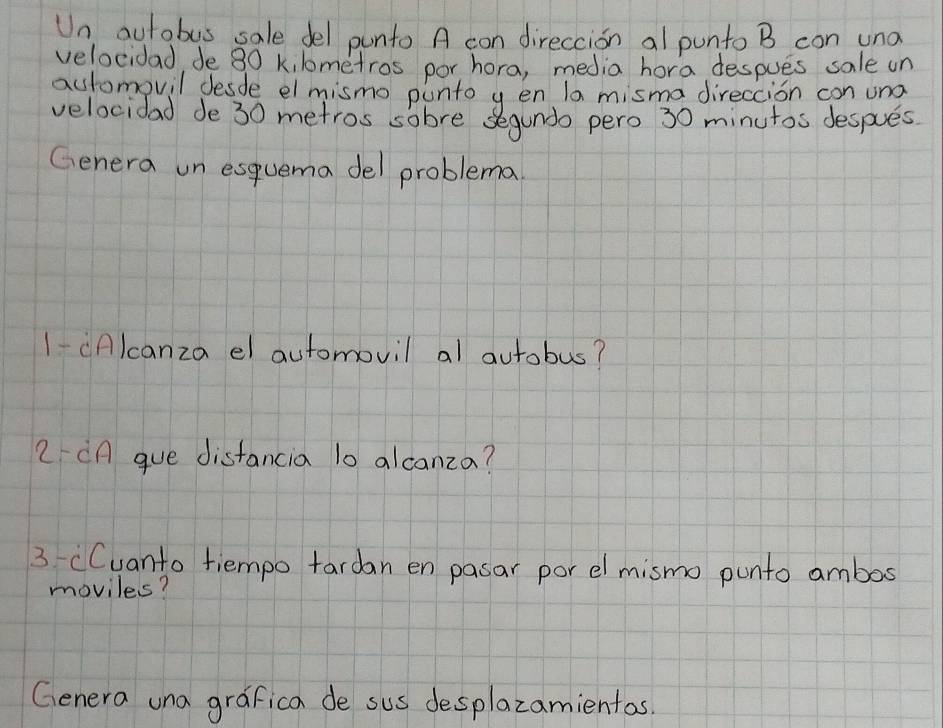 Un autobus sale del punto A con dirección al punto B con una
velocidad de 80 kilometros por hora, media hora después sale un
automovil desde el mismo punto y en la misma dirección con una
velocidad de 30 metros sobre segundo pero 30 minutos después.
Genera un esquema del problema.
1-¿Alcanza el automovil al autobus?
2-¿A que distancia lo alcanza?
3-¿Cuanto tiempo tardan en pasar por el mismo punto ambos
moviles?
Genera una gráfica de sus desplazamientos.